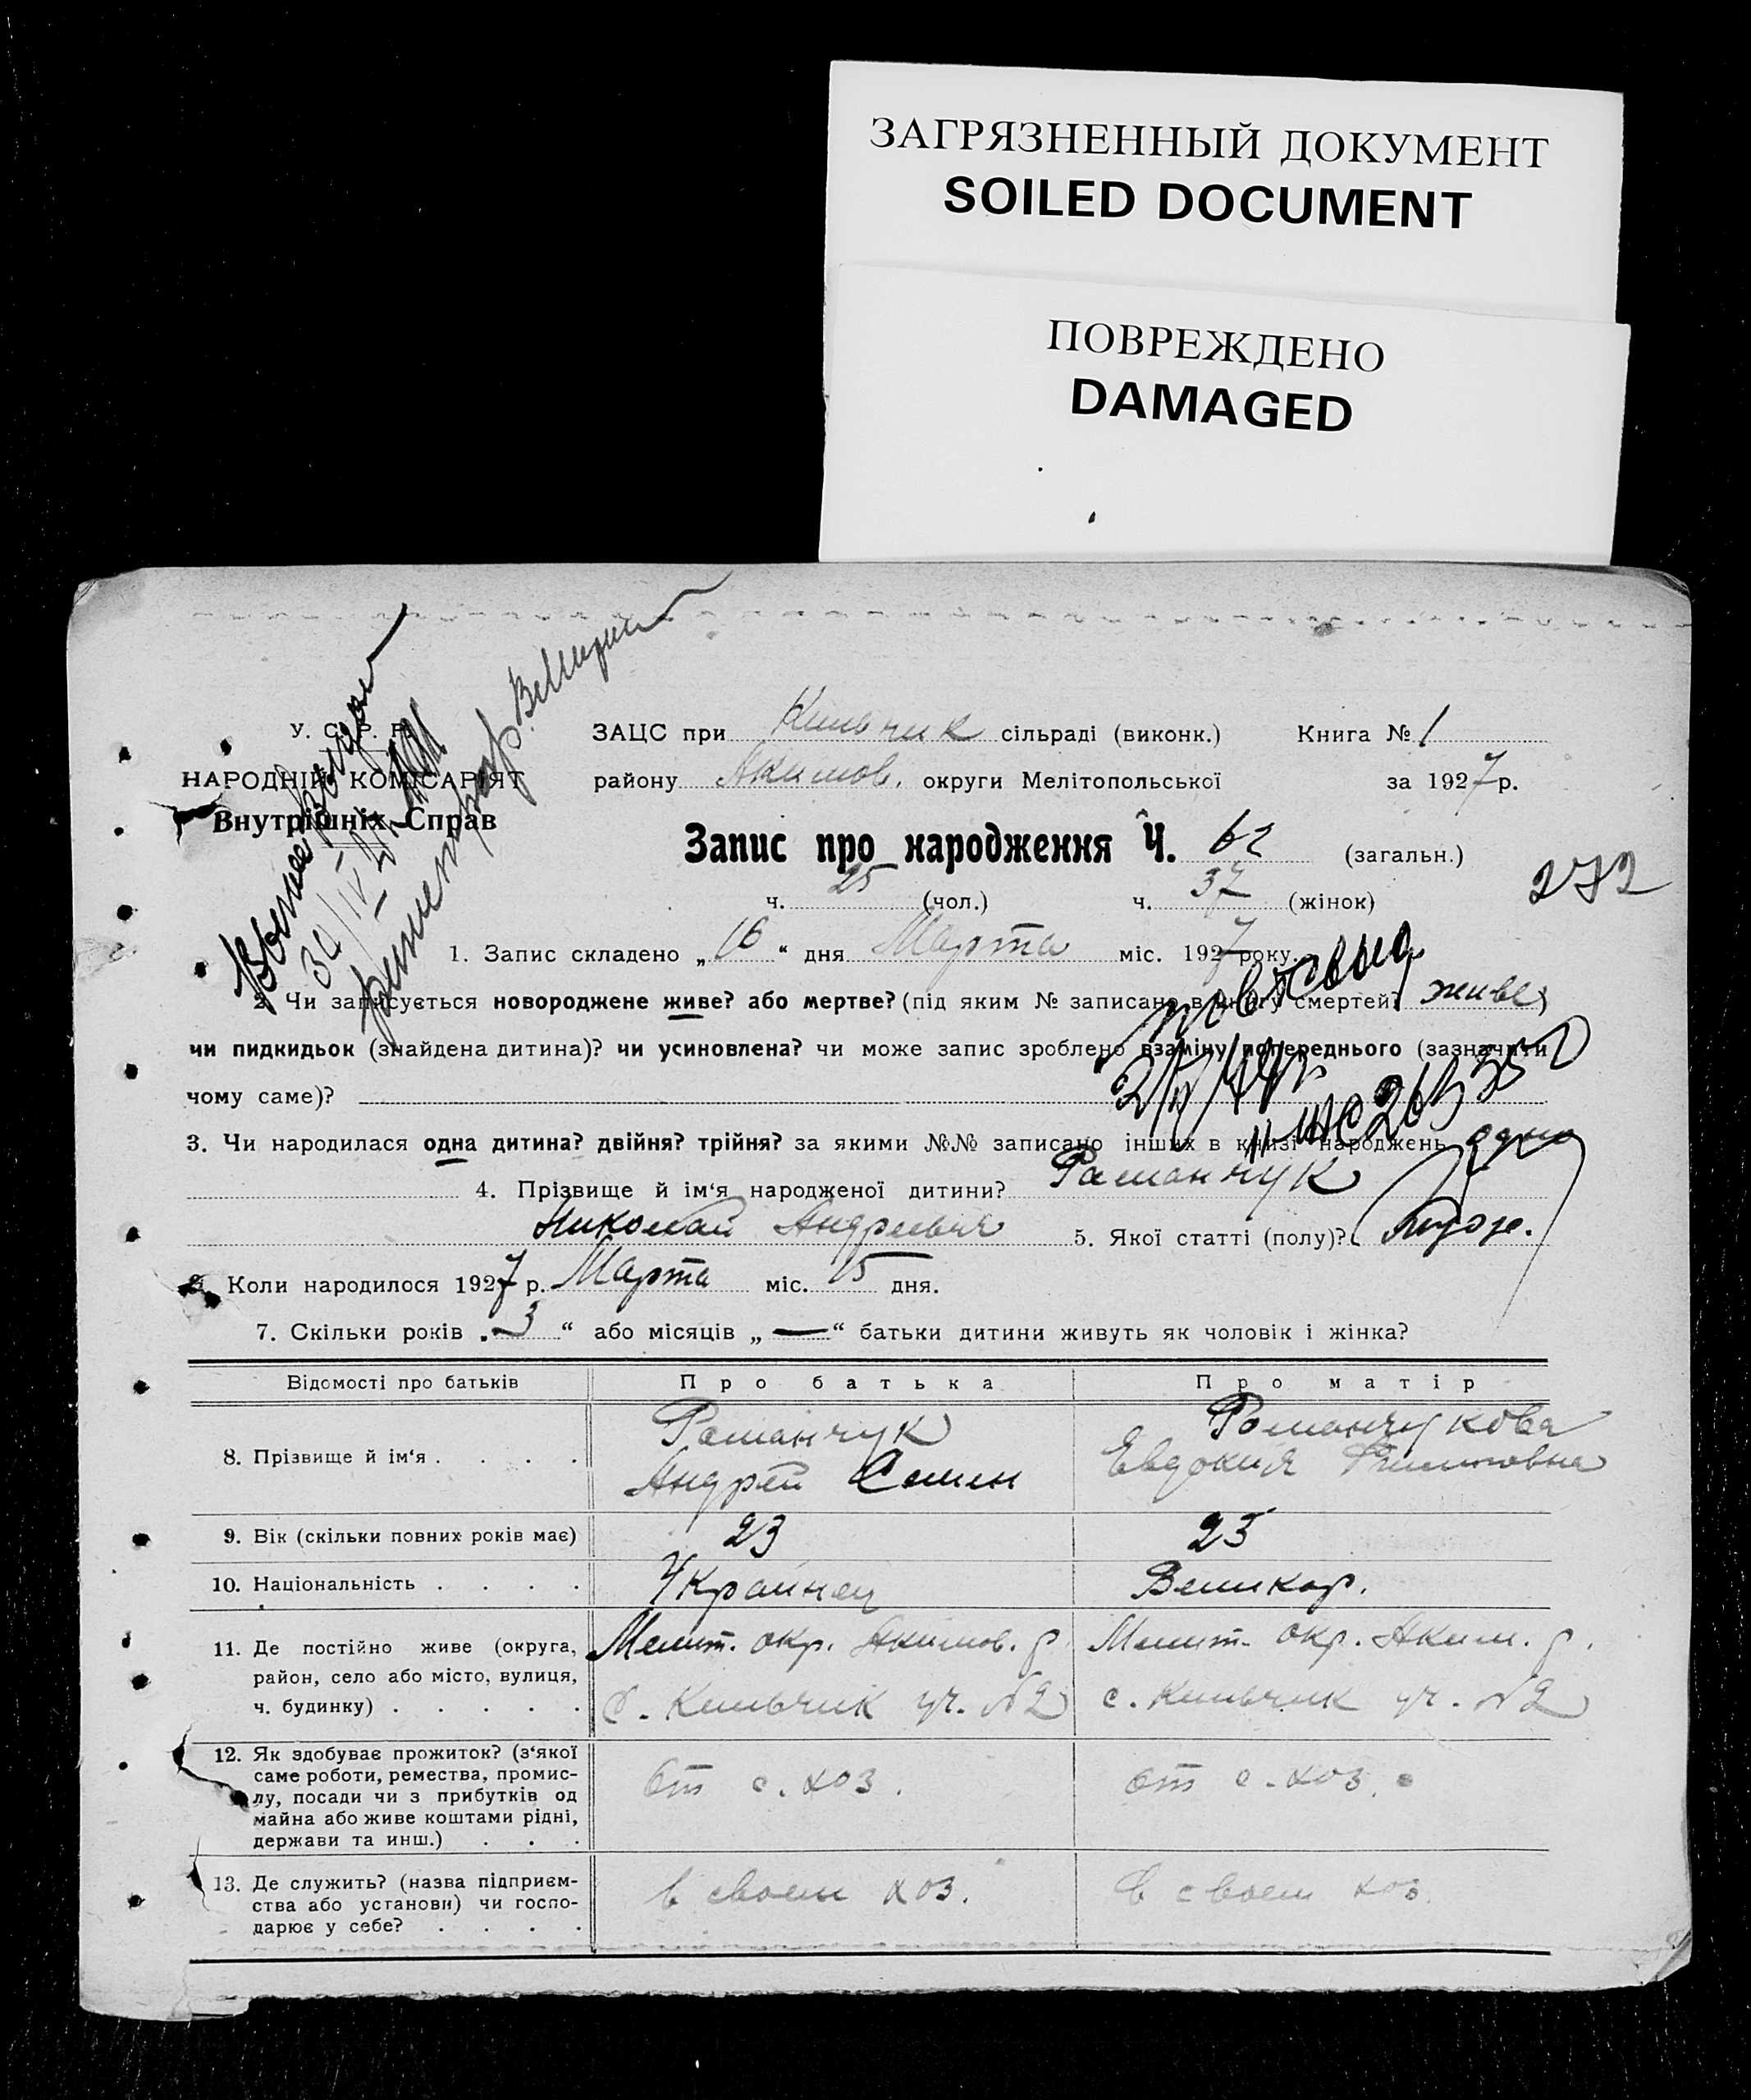 ЗАГРЯЗНЕННЫЙ ДОКУМЕНТ
SOILED DOCUMENT
ПОВРЕЖДЕНО
DAMAGED
У. С. Р. Р.
НАРОДНІЙ КОМІСАРІЯТ
Внутрішніх Справ
ЗАЦС при Кильчик сільраді (виконк.) Книга № 1
району Акимов. округи Мелітопольської за 1927 р.
Запис про народження Ч. 62 (загальн.)
ч. 25 (чол.) ч. 37 (жінок)
272
1. Запис складено „16“ дня Марта міс. 1927 року.
2. Чи записується новороджене живе? або мертве? (під яким № записано в книгу смертей? живе)
чи пидкидьок (знайдена дитина)? чи усиновлена? чи може запис зроблено взаміну попереднього (зазначити
чому саме)?
3. Чи народилася одна дитина? двійня? трійня? за якими №№ записано інших в книзі народжень одно
4. Прізвище й ім‘я народженої дитини? Романчук
Николай Андреевич 5. Якої статті (полу)?
6. Коли народилося 1927 р. Марта міс. 15 дня.
7. Скільки років „3“ або місяців „—“ батьки дитини живуть як чоловік і жінка?
Відомості про батьків Про батька Про матір
8. Прізвище й ім‘я . . . . Романчук Романчукова
Андрей Семен Евдокия Филиповна
9. Вік (скільки повних років має) 23 25
10. Національність . . . . Украинец Великор.
11. Де постійно живе (округа, район, село або місто, вулиця, ч. будинку) . . . . . Мелит. окр. Акимов. р. Мелит. окр. Аким. р.
с. Кильчик уч. №2 с. Кильчик уч. №2
12. Як здобуває прожиток? (з‘якої
саме роботи, ремества, промис-
лу, посади чи з прибутків од
майна або живе коштами рідні,
держави та инш.) . . . От с. хоз. От с. хоз.
13. Де служить? (назва підприєм-
ства або установи) чи госпо-
дарює у себе? . . . . в своем хоз. В своем хоз.